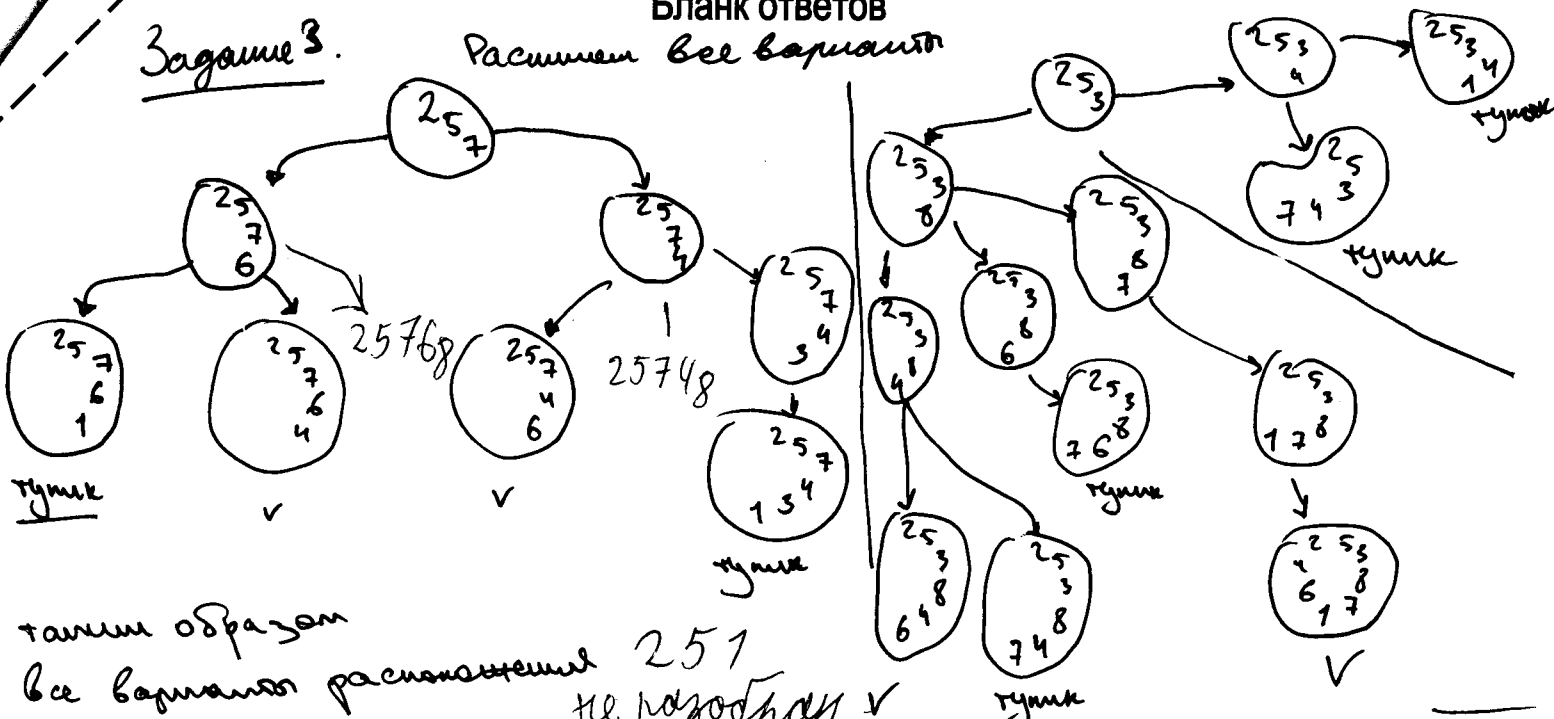 Бланк ответов
Задание 3.
Распишем все варианты
2 5 7
2 5 7 6
2 5 7 4
2 5 7 6 1
тупик
2 5 7 6 4
v
25768
2 5 7 4 6
v
25748
2 5 7 4 3
2 5 7 4 3 1
тупик
2 5 3
2 5 3 4
2 5 3 4 1
тупик
2 5 3 4 7
тупик
2 5 3 8
2 5 3 8 4
2 5 3 8 6
2 5 3 8 7
2 5 3 8 6 7
тупик
2 5 3 8 7 1
2 5 3 8 7 1 6 4
v
2 5 3 8 4 6
v
2 5 3 8 4 7
тупик
таким образом
все варианты расположения
251
не разобран